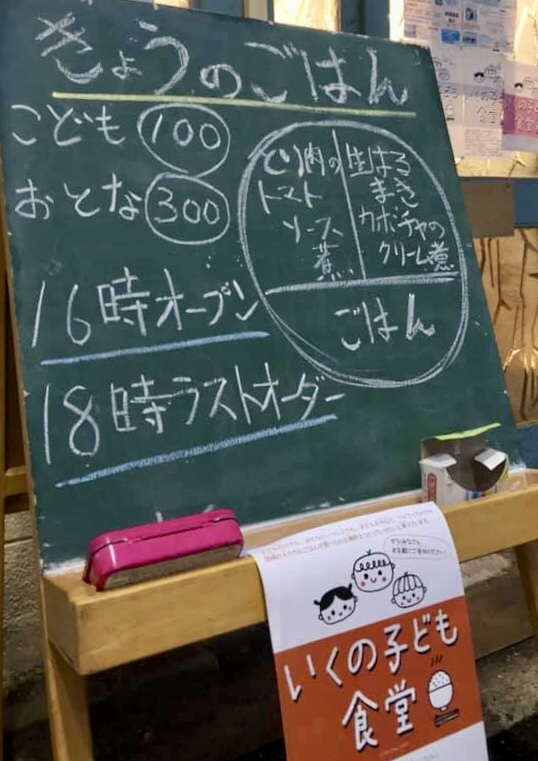 きょうのごはん
こども 100
おとな 300
とり肉の
トマト
ソース
煮
生はる
まき
カボチャの
クリーム煮
ごはん
16時オープン
18時ラストオーダー
いくの子ども
食堂
の子ども
食堂